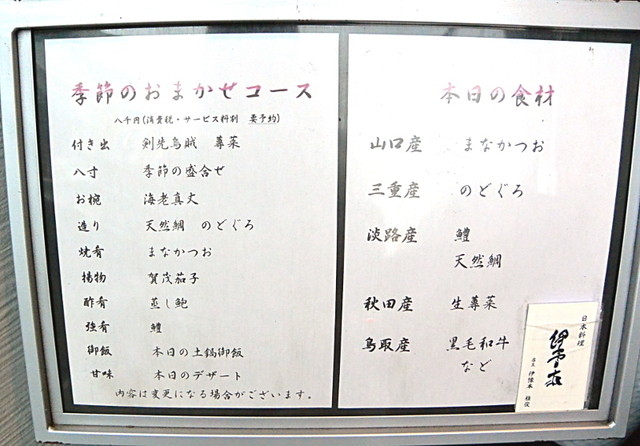 季節のおまかせコース
八千円(消費税・サービス料別 要予約)
付き出 剣先烏賊 蓴菜
八寸 季節の盛合せ
お椀 海老真丈
造り 天然鯛 のどぐろ
焼肴 まなかつお
揚物 賀茂茄子
酢肴 蒸し鮑
強肴 鱧
御飯 本日の土鍋御飯
甘味 本日のデザート
内容は変更になる場合がございます。
本日の食材
山口産 まなかつお
三重産 のどぐろ
淡路産 鱧
天然鯛
秋田産 生蓴菜
鳥取産 黒毛和牛
など
日本料理